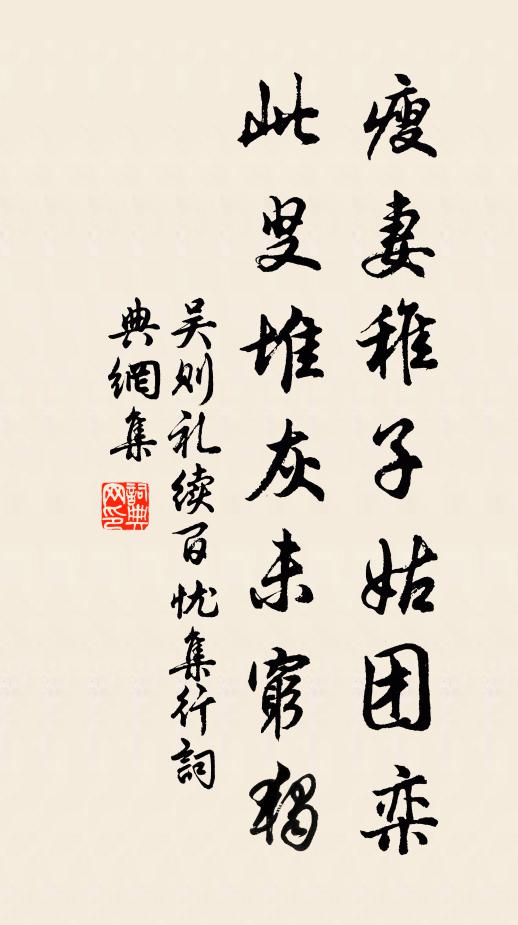 瘦妻稚子姑团栾
此叟堆灰未穷独
吴则礼续百忧集行词
典網集
詞典网印